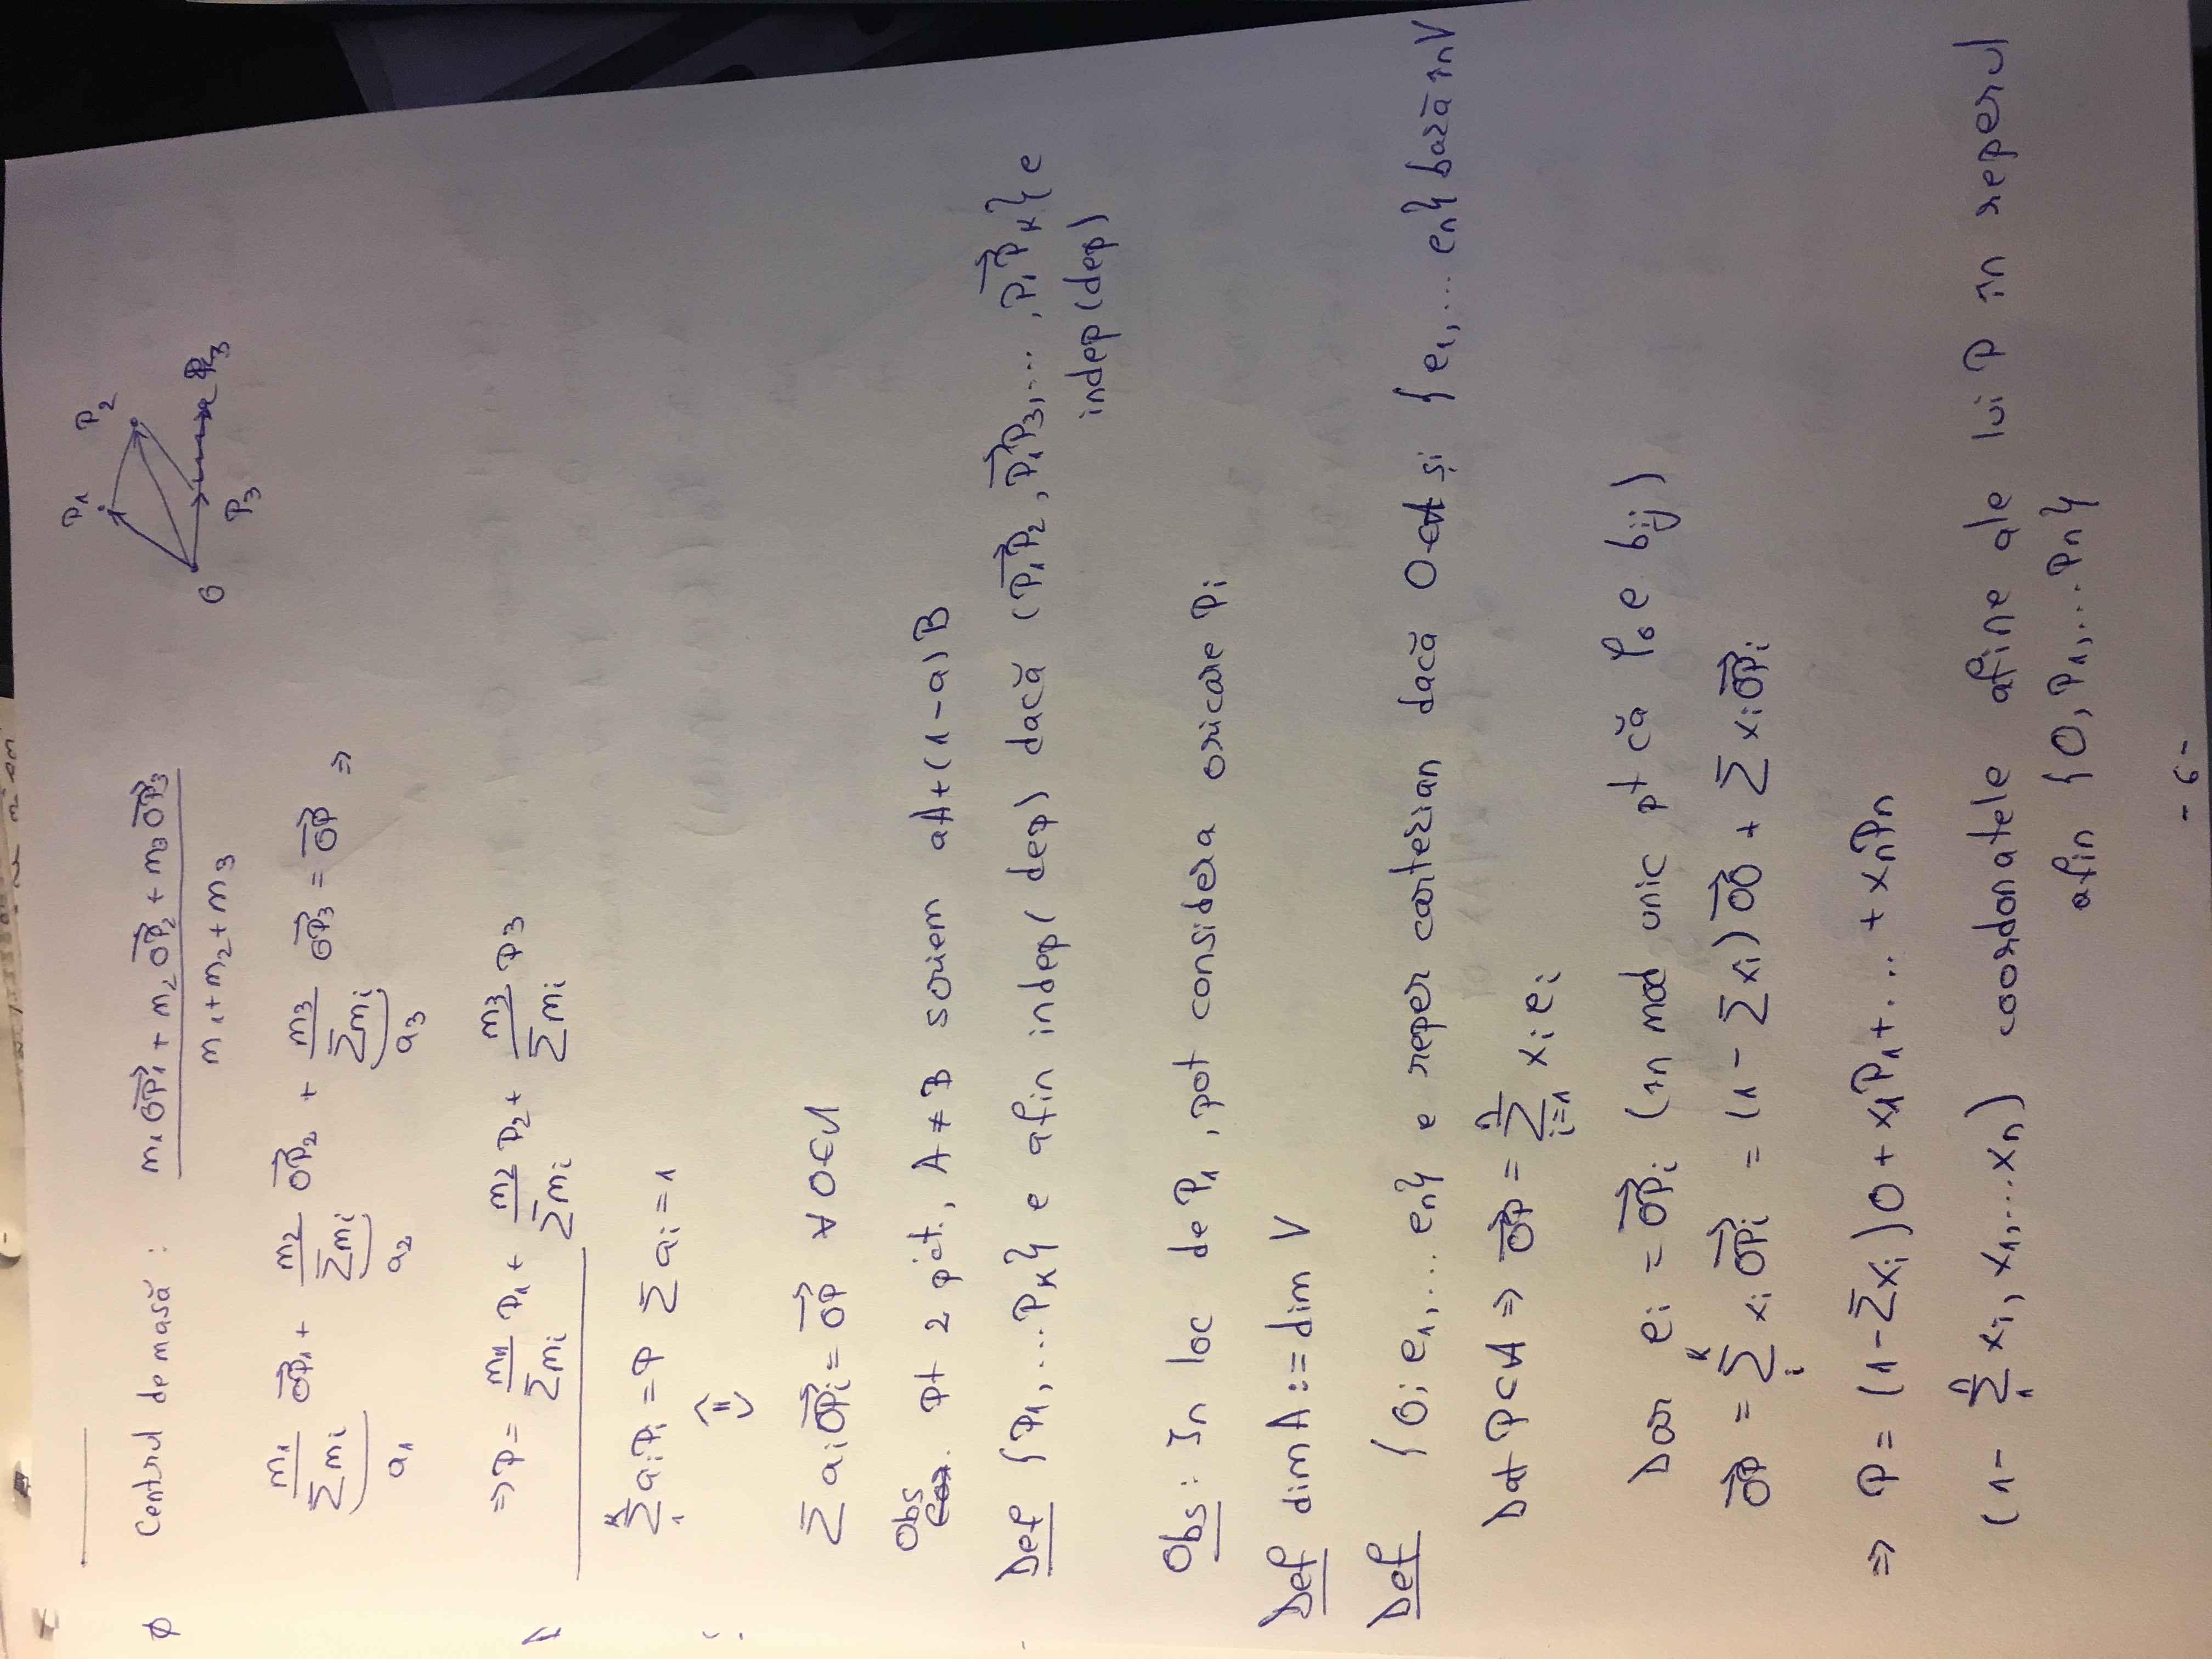 Centrul de masă : (m₁OP₁→ + m₂OP₂→ + m₃OP₃→) / (m₁+m₂+m₃)
P₁
P₂
O
P₃
m₁/Σmᵢ OP₁→ + m₂/Σmᵢ OP₂→ + m₃/Σmᵢ OP₃→ = OP→ ⇒
a₁ a₂ a₃
⇒ P = m₁/Σmᵢ P₁ + m₂/Σmᵢ P₂ + m₃/Σmᵢ P₃
Σ₁ᵏ aᵢPᵢ = P Σaᵢ = 1
⇕
Σ aᵢOPᵢ→ = OP→ ∀ O∈A
Obs Pt 2 pct., A ≠ B scriem aA+(1-a)B
Def {P₁,...Pₖ} e afin indep(dep) dacă {P₁P₂→, P₁P₃→,..., P₁Pₖ→} e
indep(dep)
Obs: In loc de P₁, pot considera oricare Pᵢ
Def dim A := dim V
Def {O; e₁,... eₙ} e reper cartezian dacă O∈A și {e₁,... eₙ} bază în V
Dat P∈A ⇒ OP→ = Σᵢ₌₁ⁿ xᵢeᵢ
Dar eᵢ = OPᵢ→ (în mod unic pt că φ₀ e bij)
OP→ = Σᵢᵏ xᵢOPᵢ→ = (1 - Σxᵢ)OO→ + ΣxᵢOPᵢ→
⇒ P = (1-Σxᵢ)O + x₁P₁+... + xₙPₙ
(1- Σ₁ⁿ xᵢ, x₁,...xₙ) coordonatele afine ale lui P în reperul
afin {O, P₁,... Pₙ}
- 6 -